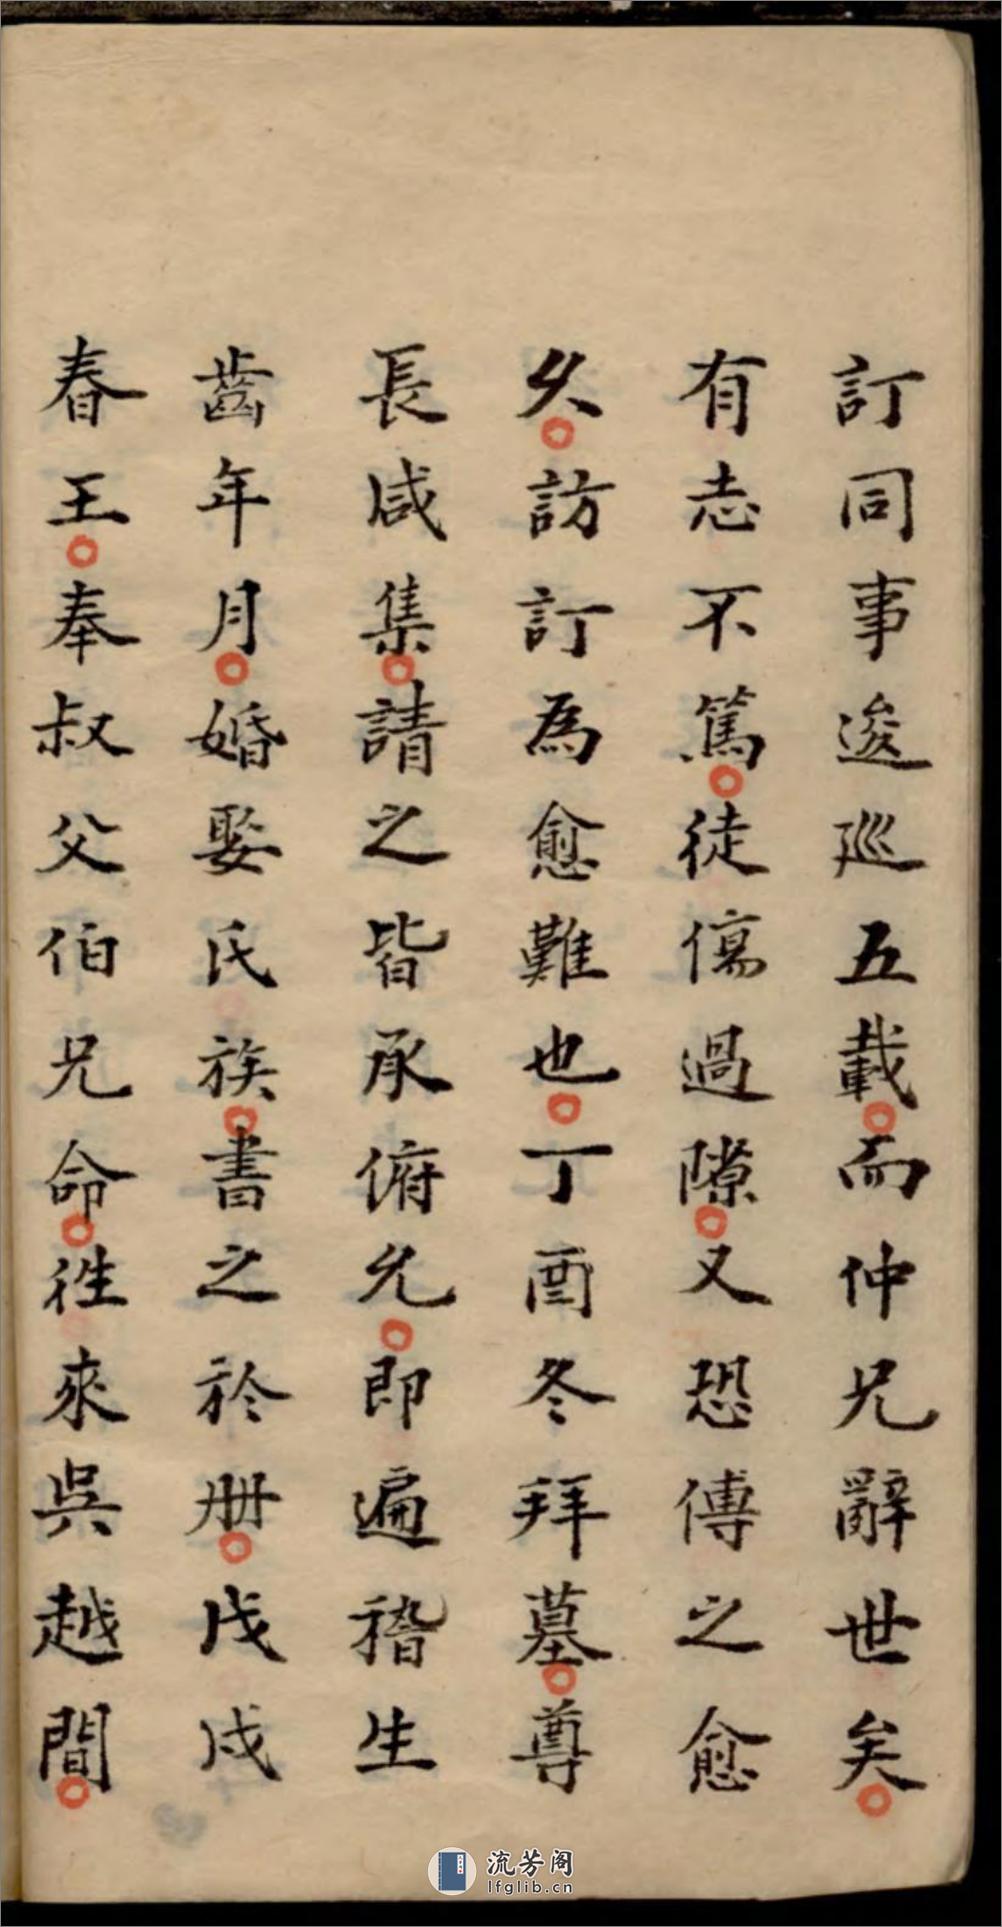 訂同事逡巡五載而仲兄辭世矣
有志不篤徒傷過隙又恐傳之愈
久訪訂為愈難也丁酉冬拜墓尊
長咸集請之皆承俯允即遍稽生
齒年月婚娶氏族書之於册戊戌
春王奉叔父伯兄命徃來吳越間
流芳阁
lfglib.cn